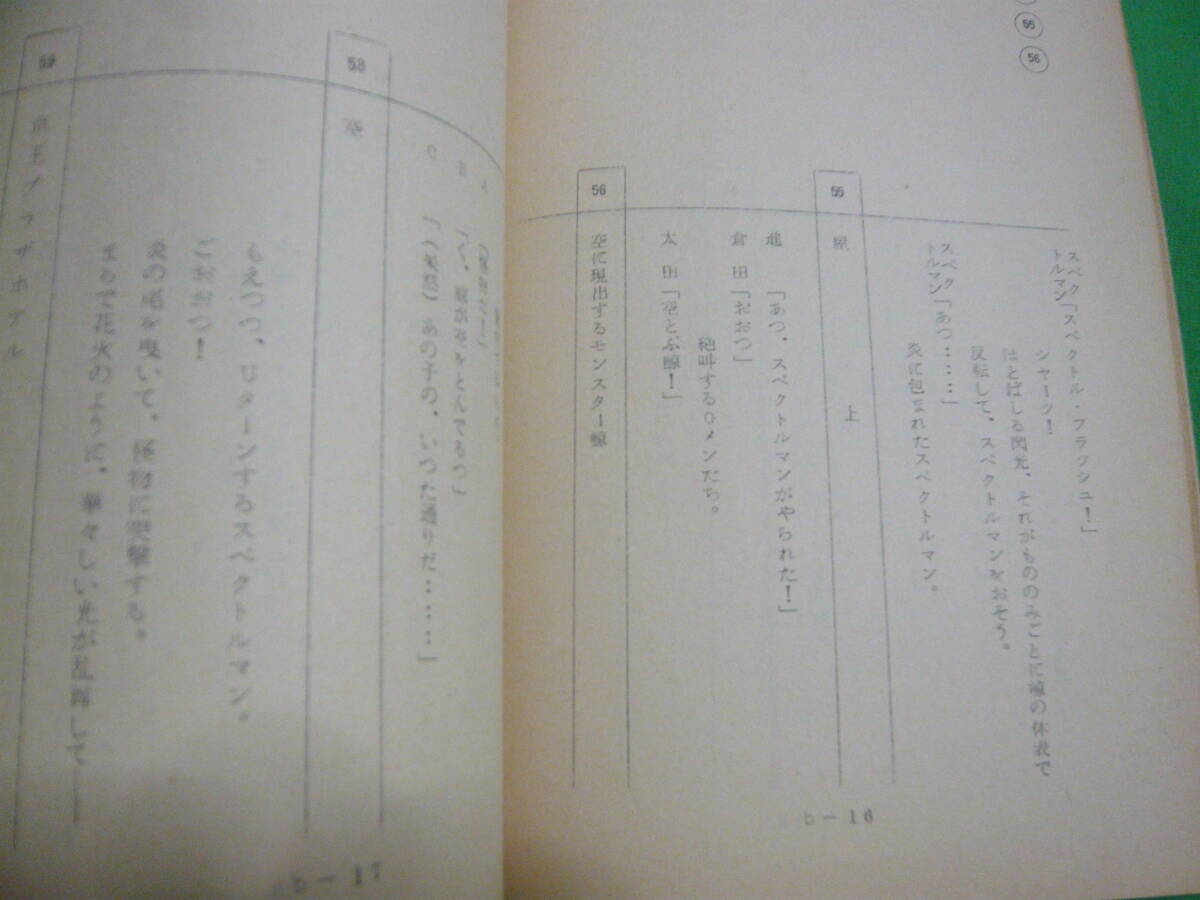 55
56
スペクトルマン「スペクトル・フラッシユ！」
シヤーツ！
ほとばしる閃光、それがもののみごとに鯨の体表で
反転して、スペクトルマンをおそう。
スペクトルマン「あつ‥‥‥」
炎に包まれたスペクトルマン。
55 屋上
進「あつ、スペクトルマンがやられた！」
倉田「おおつ」
絶叫する0メンたち。
太田「空とぶ鯨！」
56 空に現出するモンスター鯨
b－16
A
B「く、鯨が空をとんでるつ」
C「（呆然）あの子の、いつた通りだ‥‥‥」
58 空
もえつつ、Uターンするスペクトルマン。
ごおおつ！
炎の尾を曳いて、怪物に突撃する。
まるで花火のように、華々しい光が乱舞して――
59 京王プラザホテル
b－17